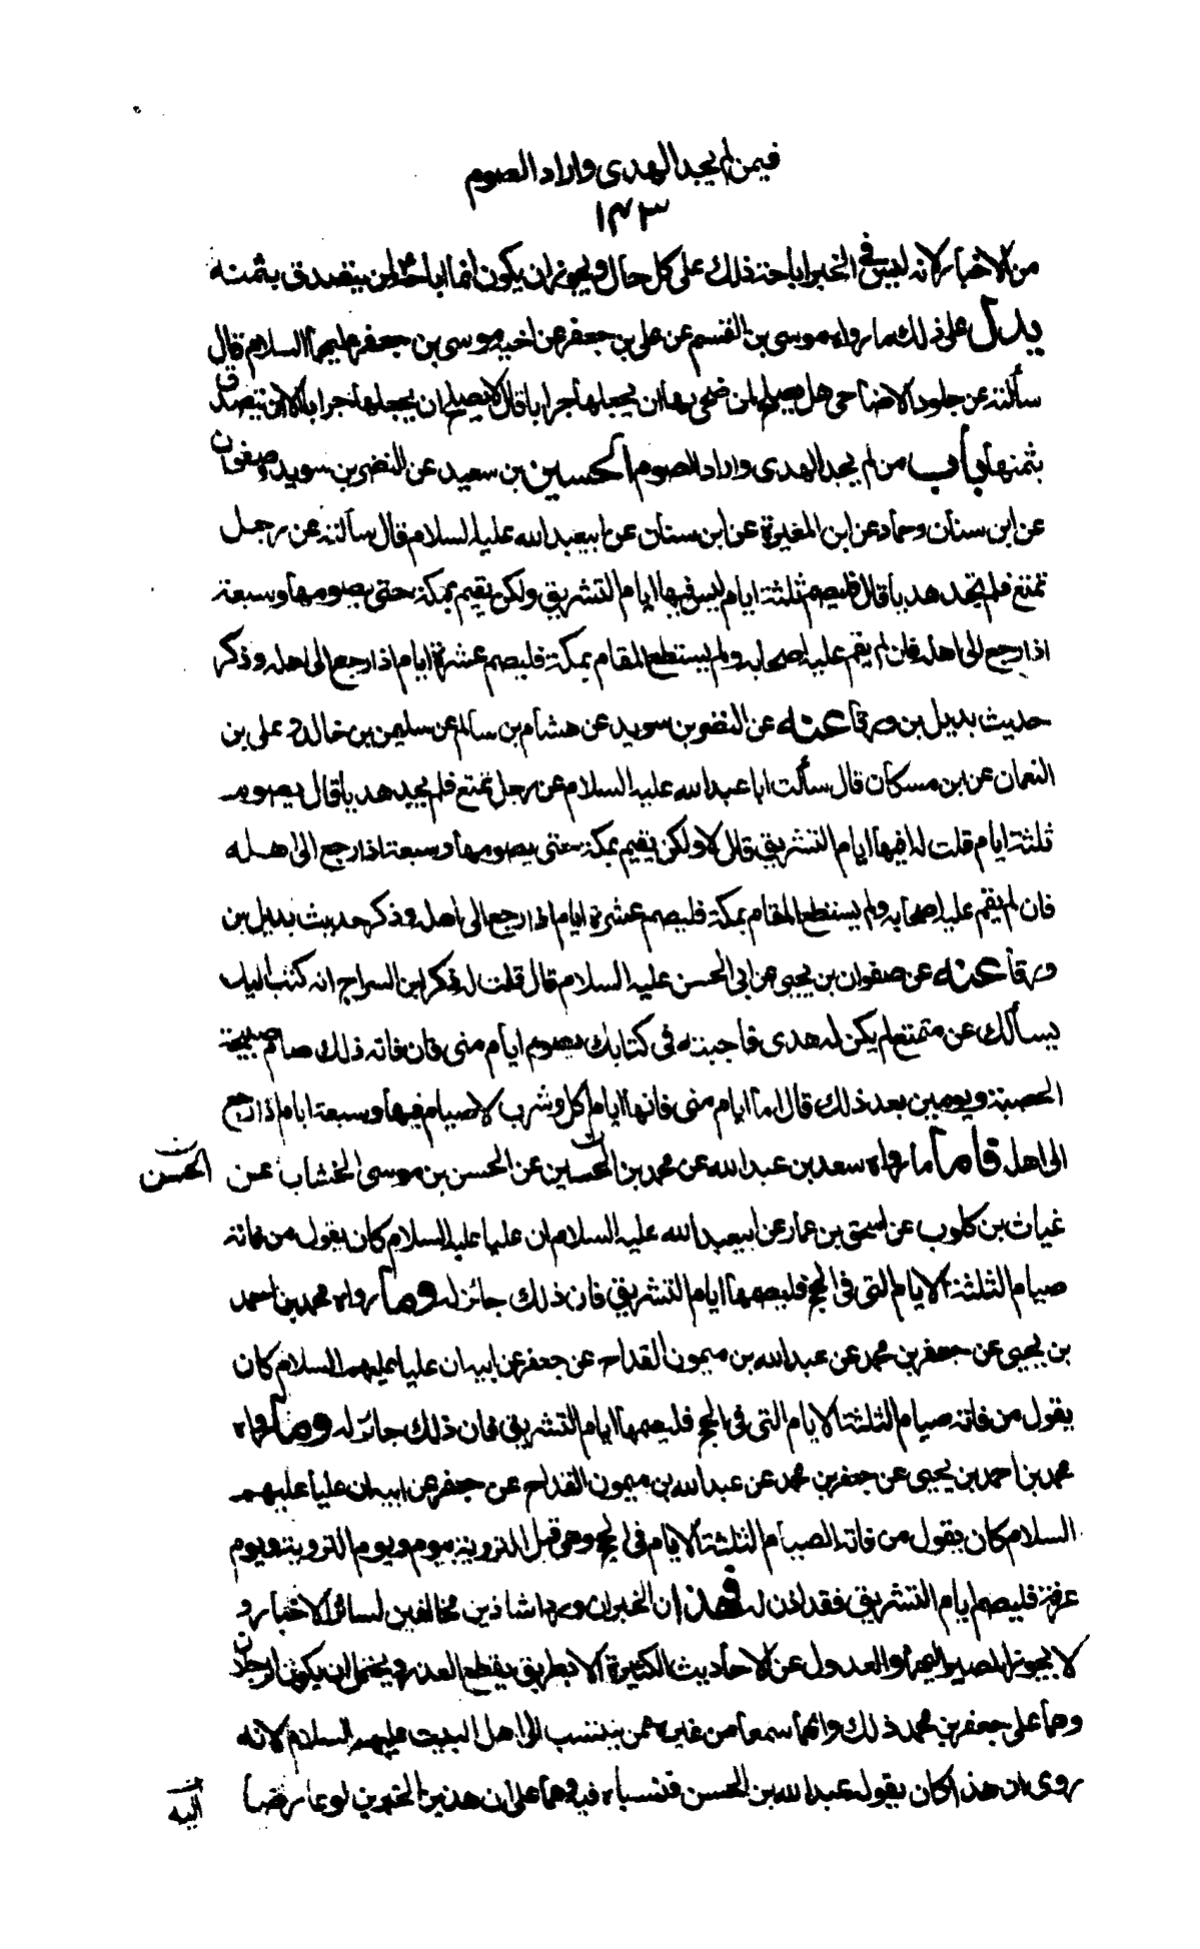 فيمن لم يجد الهدى واراد الصوم
١٤٣
من الاخبار لانه ليس في الخبر اباحة ذلك على كل حال ويجوز ان يكون انما اباحه لمن يتصدق بثمنه
يدل على ذلك ما رواه موسى بن القسم عن على بن جعفر عن اخيه موسى بن جعفر عليهما السلام قال
سألته عن جلود الاضاحى هل يصلح لمن ضحى بها ان يجعلها جرابا قال لا يصلح ان يجعلها جرابا الا ان يتصدق
بثمنها باب من لم يجد الهدى واراد الصوم الحسين بن سعيد عن النضر بن سويد وصفوان
عن ابن سنان وحماد عن ابن المغيرة عن ابن سنان عن ابيعبدالله عليه السلام قال سألته عن رجل
تمتع فلم يجد هديا قال فليصم ثلثة ايام ليس فيها ايام التشريق ولكن يقيم بمكة حتى يصومها وسبعة
اذا رجع الى اهله فان لم يقم عليه اصحابه ولم يستطع المقام بمكة فليصم عشرة ايام اذا رجع الى اهله وذكر
حديث بديل بن ورقا عنه عن النضر بن سويد عن هشام بن سالم عن سليمن بن خالد و على بن
النعمان عن ابن مسكان قال سألت ابا عبد الله عليه السلام عن رجل تمتع فلم يجد هديا قال يصوم
ثلثة ايام قلت له افيها ايام التشريق قال لا ولكن يقيم بمكة حتى يصومها وسبعة اذا رجع الى اهله
فان لم يقم عليه اصحابه ولم يستطع المقام بمكة فليصم عشرة ايام اذا رجع الى اهله وذكر حديث بديل بن
ورقا عنه عن صفوان بن يحيى عن ابى الحسن عليه السلام قال قلت له ذكر ابن السراج انه كتب اليك
يسألك عن متمتع لم يكن له هدى فاجبته فى كتابك يصوم ايام منى فان فاته ذلك صام صبيحة
الحصبة ويومين بعد ذلك قال اما ايام منى فانها ايام اكل وشرب لا صيام فيها وسبعة ايام اذا رجع
الى اهله فاما ما رواه سعد بن عبدالله عن محمد بن الحسين عن الحسن بن موسى الخشاب عن
الحسن
غياث بن كلوب عن اسحق بن عمار عن ابيعبدالله عليه السلام ان عليا عليه السلام كان يقول من فاته
صيام الثلثة الايام التى فى الحج فليصمها ايام التشريق فان ذلك جائز له وما رواه محمد بن احمد
بن يحيى عن جعفر بن محمد عن عبدالله بن ميمون القداح عن جعفر عن ابيه ان عليا عليهم السلام كان
يقول من فاته صيام الثلثة الايام التى فى الحج فليصمها ايام التشريق فان ذلك جائز له وما رواه
محمد بن احمد بن يحيى عن جعفر بن محمد عن عبدالله بن ميمون القداح عن جعفر عن ابيه ان عليا عليهم
السلام كان يقول من فاته الصيام الثلثة الايام فى الحج وهى قبل التروية بيوم ويوم التروية ويوم
عرفة فليصم ايام التشريق فقد اذن له فهذان الخبران وردا شاذين مخالفين لسائر الاخبار و
لا يجوز المصير اليهما والعدول عن الاحاديث الكثيرة الا بطريق يقطع العذر ويحتمل ان يكون الرجلان
وهما على جعفر بن محمد ذلك وانهما سمعا من غيره ممن ينتسب الى اهل البيت عليهم السلام لانه
روى ان هذا كان يقوله عبدالله بن الحسن فنسباه فيه وهما على ان هذين الخبرين لو عارضا
اليه